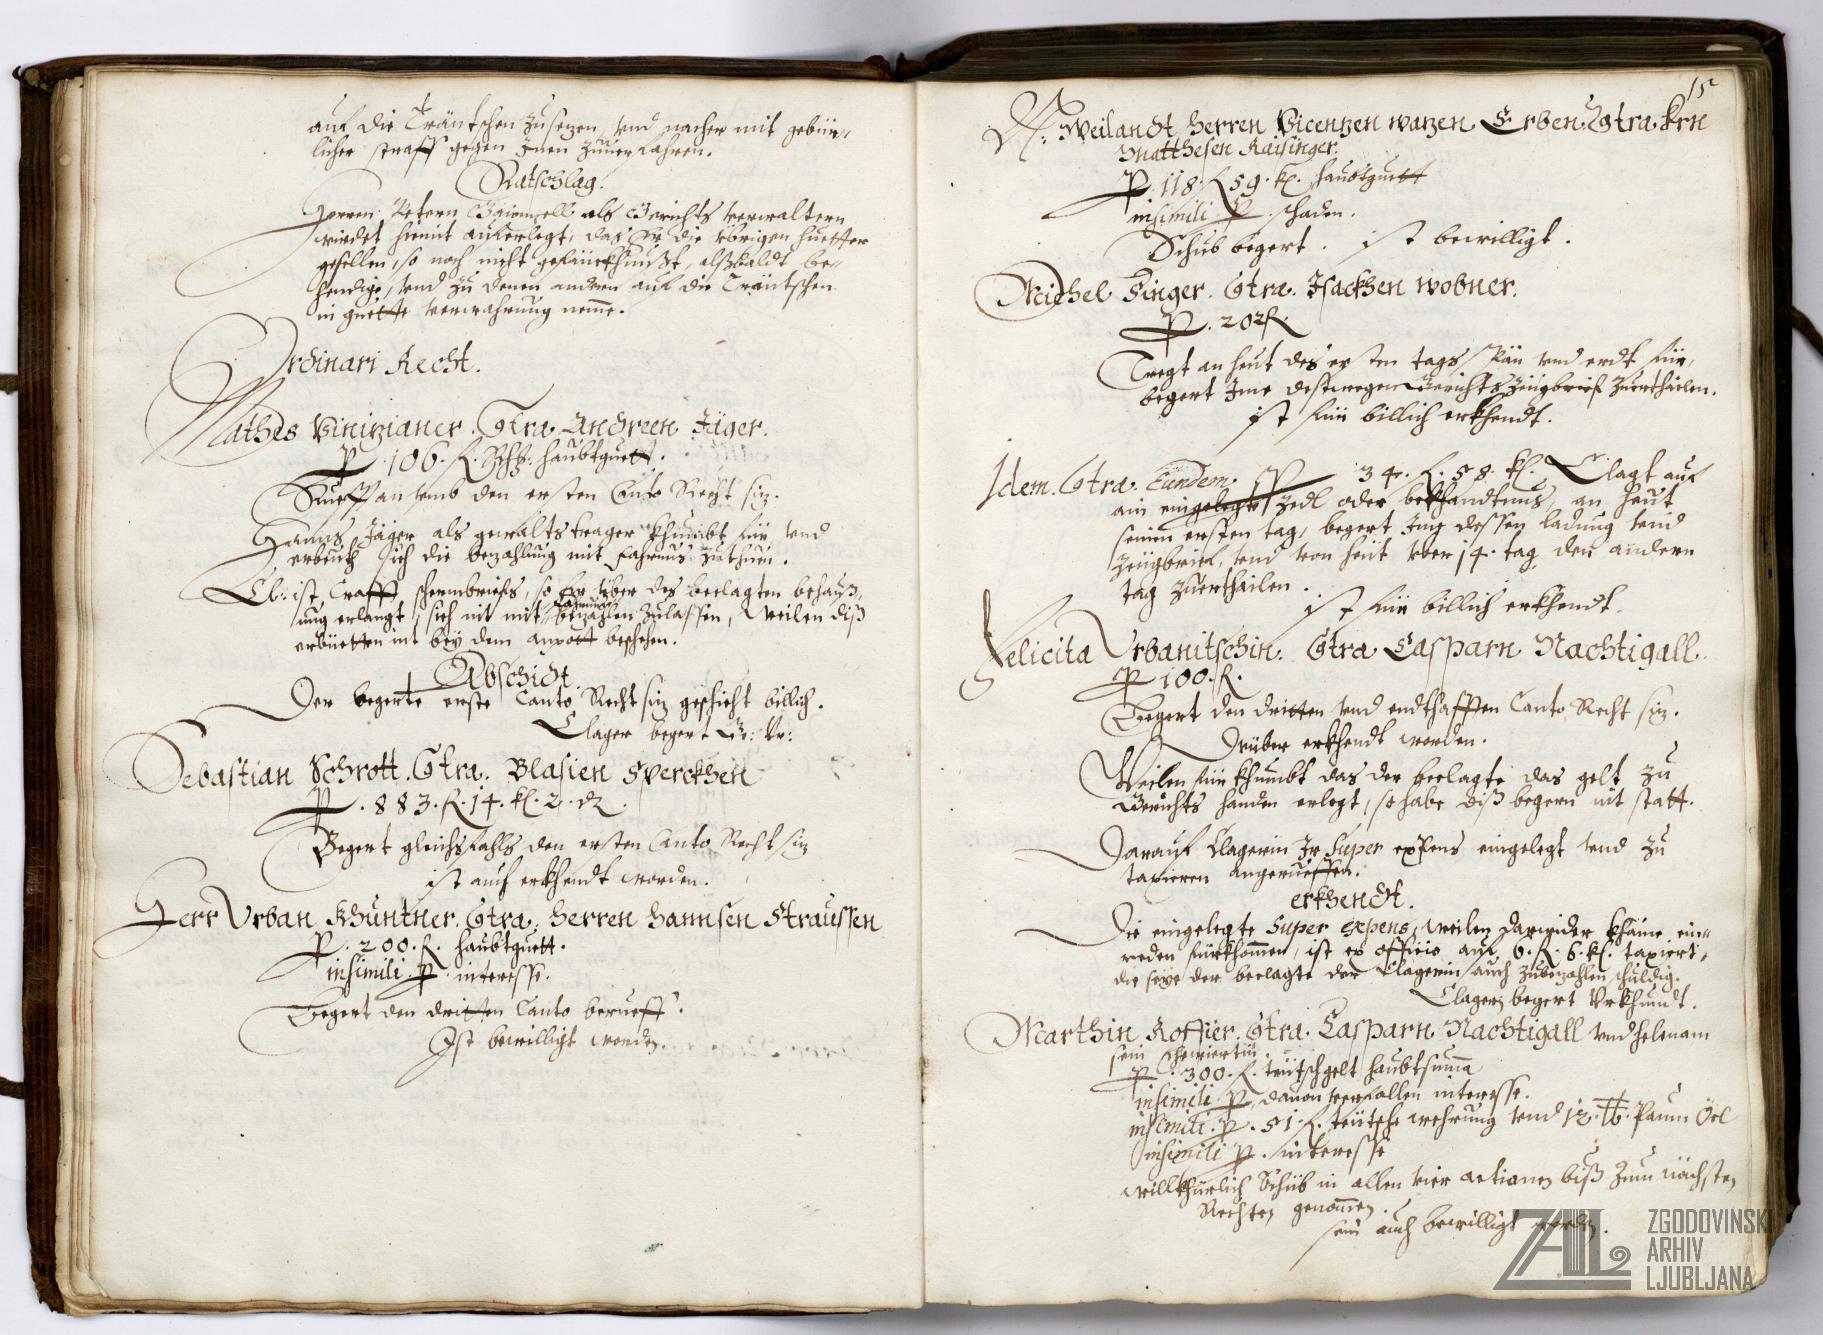 auf die Träntschen zusezen, vnd nacher mit gebür-
licher straff gegen Inen zuuerfahren.
Ratschlag.
Herren Petern als Gerichts verwaltern
wirdet hiemit auferlegt, das Er die vbrigen huetter
gesellen, so noch nicht gefänckhnußt, alßbaldt be-
hendige, vnd zu denen andern auf die Träntschen
in guette verwahrung nemme.
Ordinari Recht.
Mathes Vinizianer. Contra. Andreen Jäger.
P. 106. f. haubtguett.
Rueff an vmb den ersten Canto Recht siz.
Hanns Jäger als gewaltstrager khumbt für, vnd
erbeuth sich die bezahlung mit fahrnus zuthuen.
Cl: ist Crafft schermbrieffs, so Er über des beclagten behauß-
ung erlangt, sich nit mit fahrnus bezahlen zulassen, Weilen diß
erbüetten nit bey dem anpott beschehen.
Abschidt.
Der begerte erste Canto Recht siz geschieht billich.
Clager begert Gr: Vr:
Sebastian Schrott. Contra. Blasien Sperckhen
P. 883. f. 14. kr. 2. dz
Begert gleichsfahls den ersten Canto Recht siz
ist auch erkhendt worden.
Herr Vrban Khuntner. Contra. Herren Hannsen Straussen
P. 200. f. haubtguett.
insimili. P. interesse.
Begert den dritten Canto berueff.
Ist bewilligt worden.
15
N: Weilandt Herren Vicenzen Warzen Erben. Contra. Hrn
Matthesen Raisinger.
P. 118. f 59. kr. haubtguett
insimili P. schaden.
Schub begert. ist bewilligt.
Michel Finger. Contra. Isackhen Wobner.
P. 202 f.
Tregt an heut des ersten tags Pän vnd erdt für,
begert Ime destwegen Gerichts Zeugbrief zuerthailen.
ist für billich erkhendt.
Idem. Contra. Eundem. P 34. f. 58. kr. Clagt auf
ain eingelegte zedl oder bekhandtnus, an heut
seinen ersten tag, begert Ing dessen ladung vnd
zeugbrief, vnd von heut vber 14. tag den andern
tag zuerthailen.
ist für billich erkhendt.
Felicita Vrbanitschin. Contra Casparn Nachtigall.
P 100. f.
Begert den dritten vnd endthafften Canto Recht siz.
Drüber erkhendt worden.
Weilen fürkhumbt das der beclagte das gelt zu
Gerichts handen erlegt, so habe diß begern nit statt.
Darauf Clagerin Ir Super expens eingelegt vnd zu
taxieren angerueffen.
erkhendt.
Die eingelegte Super expens, weilen darwider khaine ein-
reden fürkhomen, ist ex officio auf 6. f. 6. kr. taxiert,
die seye der beclagte der Clagerin auch zubezahlen schuldig.
Clagerin begert Vrkhundt.
Marthin Koffler. Contra. Casparn Nachtigall vnd Helenam
sein Ehewiertin.
P. 300. f. teutsch gelt haubtsuma
insimili P, dauon verfallen interesse.
insimili. P. 51. f. teutsche wehrung vnd 12. ℔. Paum Öel
insimili P. interesse
willkhürlich Schub in allen vier actionen biß zum nächsten
Rechten genomen.
sein auch bewilligt worden.
ZAL
ZGODOVINSKI
ARHIV
LJUBLJANA